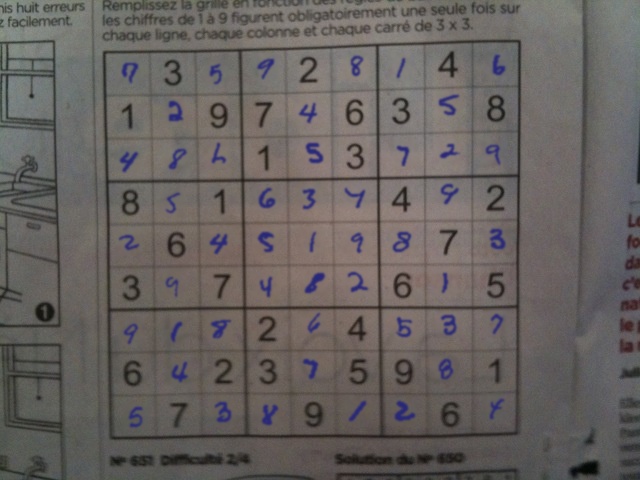 nis huit erreurs
facilement.
Remplissez la grille en fonction des
les chiffres de 1 à 9 figurent obligatoirement une seule fois sur
chaque ligne, chaque colonne et chaque carré de 3 x 3.
7 3 5 9 2 8 1 4 6
1 2 9 7 4 6 3 5 8
4 8 6 1 5 3 7 2 9
8 5 1 6 3 7 4 9 2
2 6 4 5 1 9 8 7 3
3 9 7 4 8 2 6 1 5
9 1 8 2 6 4 5 3 7
6 4 2 3 7 5 9 8 1
5 7 3 8 9 1 2 6 4
1
N° 651 Difficulté 2/4
Solution du N° 650